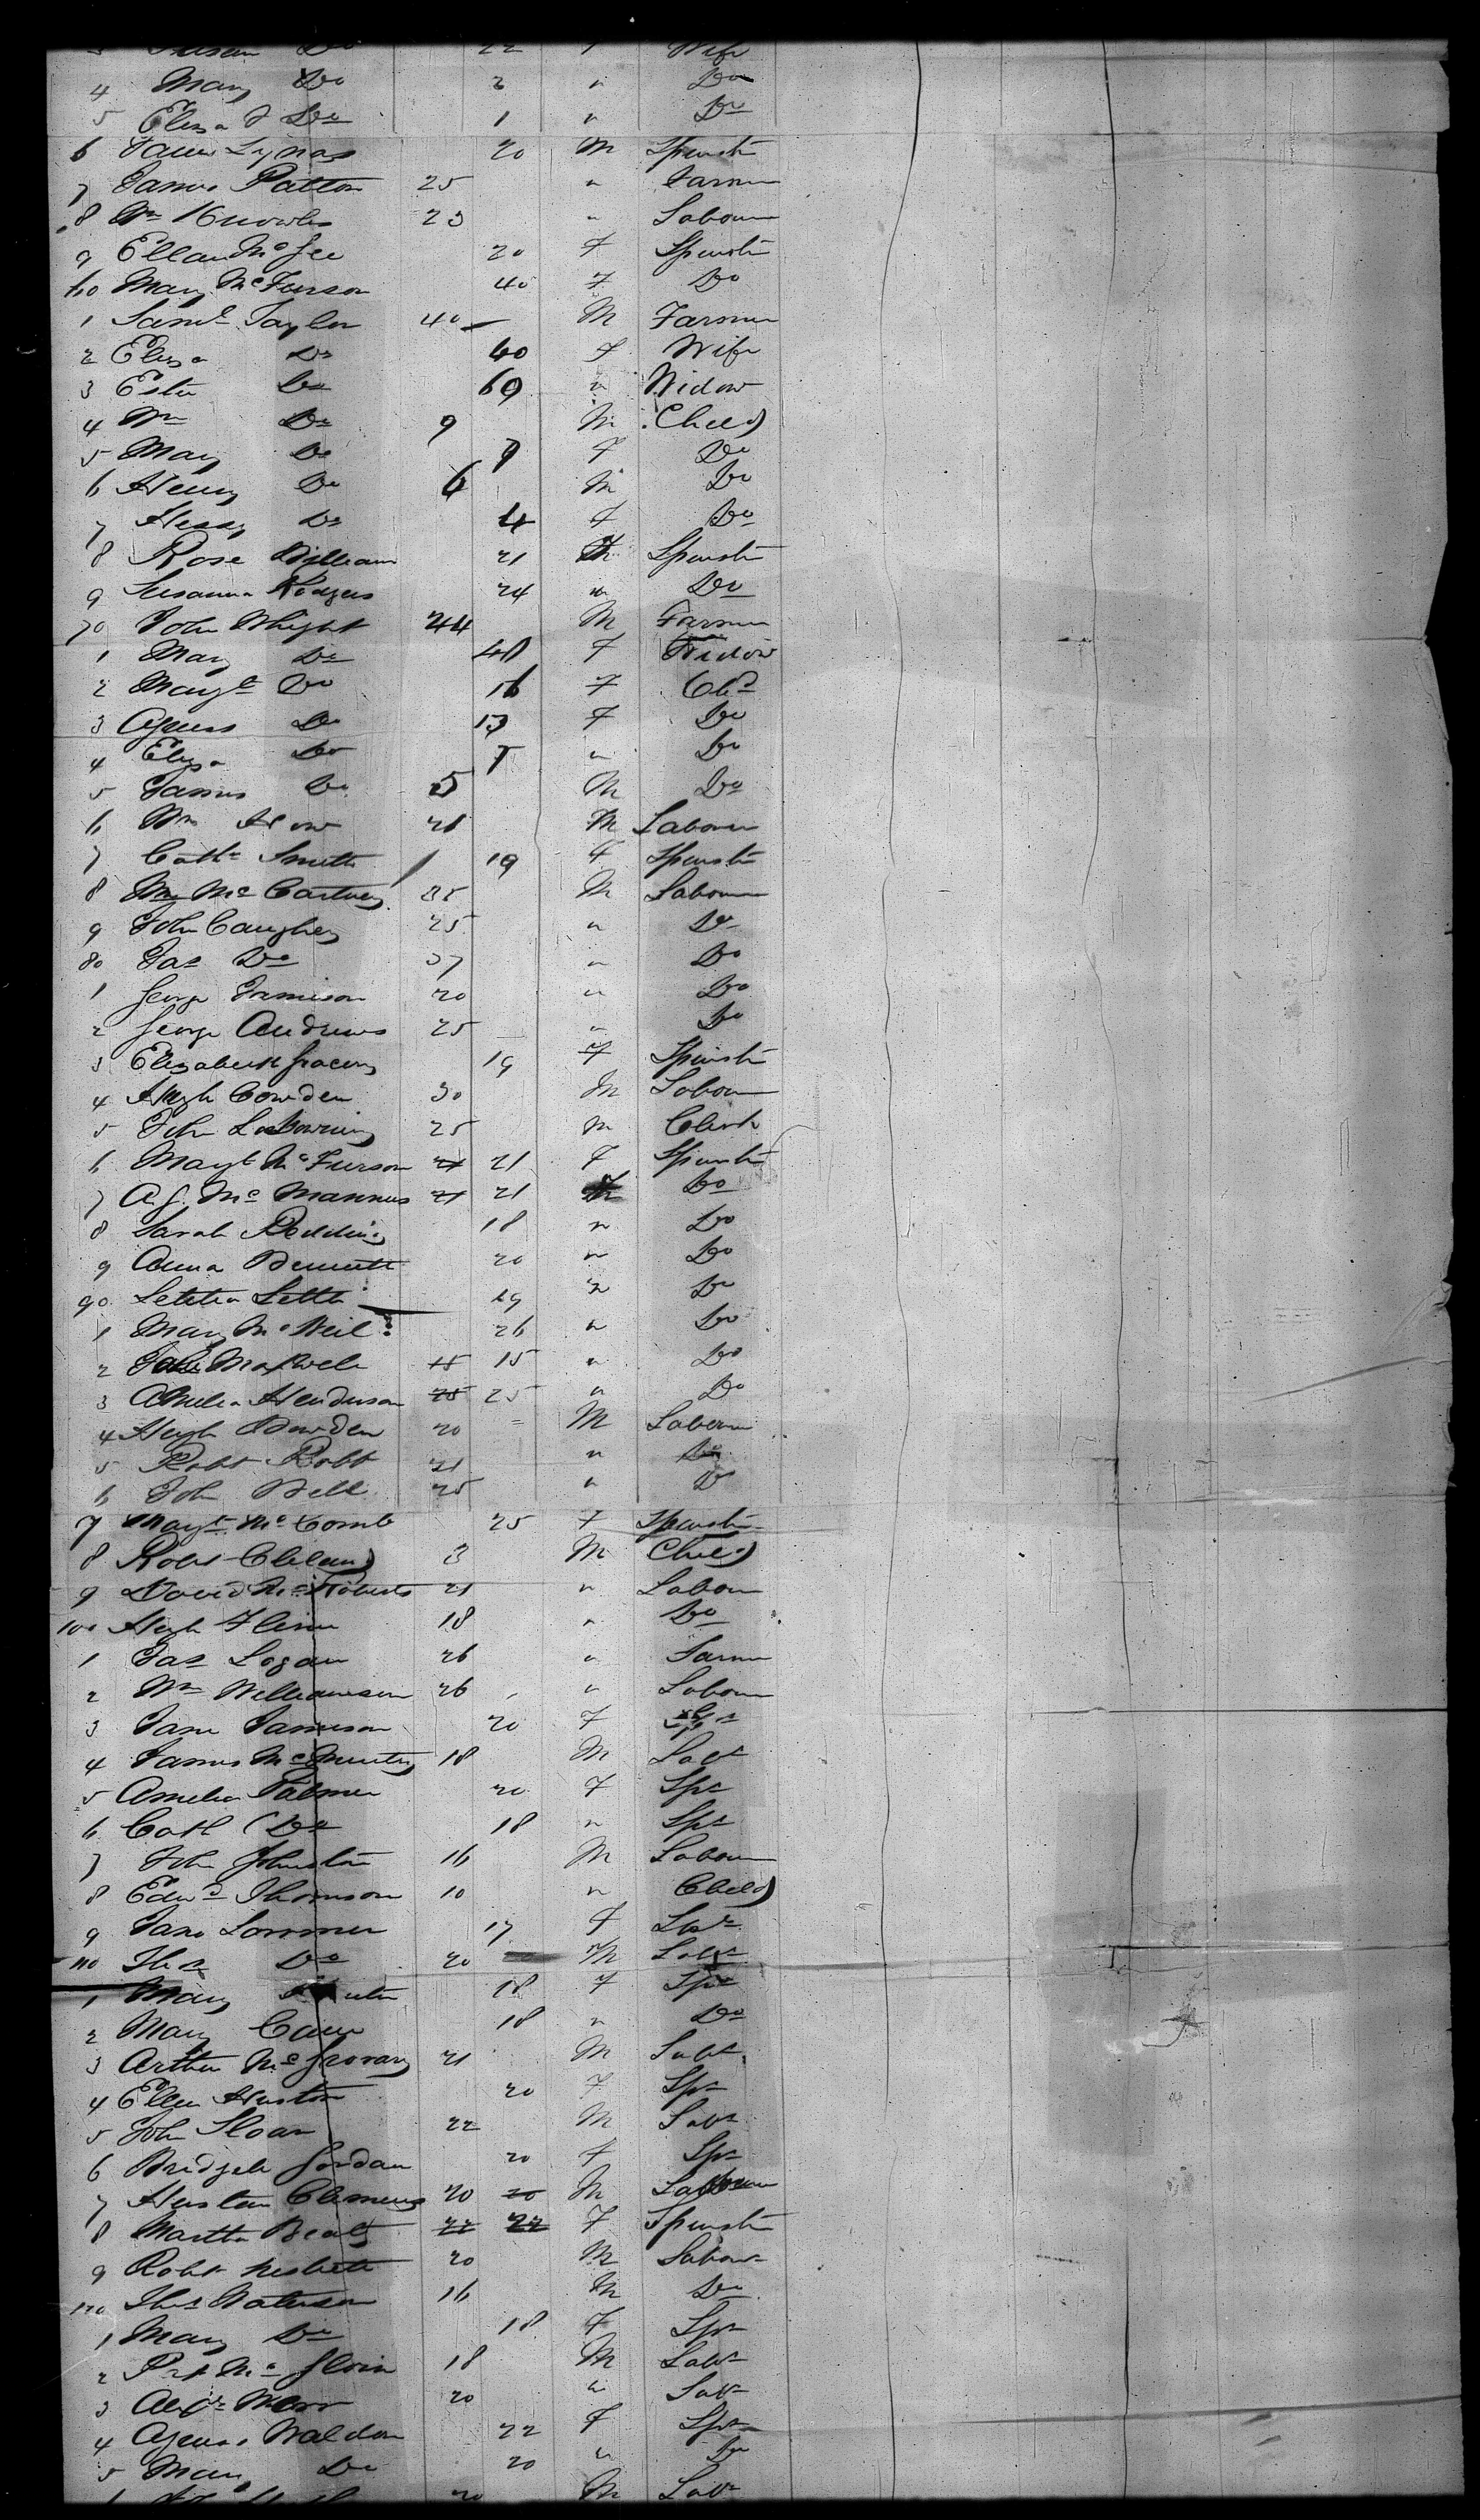 Susan Do 22 F Wife
4 Mary Do 2 " Do
5 Eliza J Do 1 " Do
6 Lynas 20 M Spinstr
7 James Patton 25 " Farmer
8 Wm Knowles 23 " Labourer
9 Ellan McGee 20 F Spinstr
60 Mary McFerson 40 F Do
1 Saml Taylor 40 M Farmer
2 Eliza Do 40 F Wife
3 Ester Do 69 " Widow
4 Wm Do 9 M Child
5 Mary Do 9 F Do
6 Henry Do 6 M Do
7 Do 4 F Do
8 Rose 21 Spinstr
9 Susanna Rodgers 24 " Do
70 John Wright 44 M Farmer
1 Mary Do 48 F Widow
2 Margt Do 16 F Chd
3 Agness Do 13 F Do
4 Eliza Do 7 " Do
5 James Do 5 M Do
6 Wm How M Labourer
7 Cathe Smith 19 F Spinstr
8 McCartney 35 M Labourer
9 John Caughey 25 " Do
80 Jas Do 37 " Do
1 George Jamison 20 " Do
2 George Andrews 25 " Do
3 Elizabeth Gracey 19 F Spinstr
4 Hugh Cowden 30 M Labour
5 John 25 M Clerk
6 Margt McFerson 21 21 F Spinstr
7 McMannus 21 21 Do
8 Sarah Redding 18 " Do
9 Anna Bennett 20 " Do
90 Letetia 19 " Do
1 Mary McNeil 26 " Do
2 Maxwell 15 15 " Do
3 Amelia Henderson 25 25 " Do
4 Hugh Bowden 20 M Labourer
5 Robt Robb 21 " Do
6 John Bell 25 " Do
7 Margt McComb 25 F Spinstr
8 Robt Cleland 3 M Child
9 David McRoberts 21 " Labour
100 Hugh 18 " Do
1 Jas Logan 26 " Farmer
2 Wm Williamson 26 " Labour
3 Jane Jamison 20 F
4 James McMurtry 18 M Labr
5 Amelia Palmer 20 F Spr
6 Cath Do 18 " Spr
7 John Johnston 16 M Labour
8 Edwd Thomson 10 " Child
9 Jane Lorrimer 17 F Spr
110 Thos Do 20 M Labr
1 Mary 18 F Spr
2 Mary 18 " Do
3 Arthur 21 M Labr
4 Ellen Huston 20 F Spr
5 John Sloan 22 M Labr
6 Bridget Jordan 20 F Spr
7 Clemens 20 20 M Labourer
8 Martha Beaty 22 22 F Spinstr
9 Robt Nesbett 20 M Labour
120 Thos Waterson 16 M Do
1 Mary Do 18 F Spr
2 18 M Labr
3 Alexr 20 " Labr
4 Agness Waldon 22 F Spr
5 Mary Do 20 " Do
20 M Labr